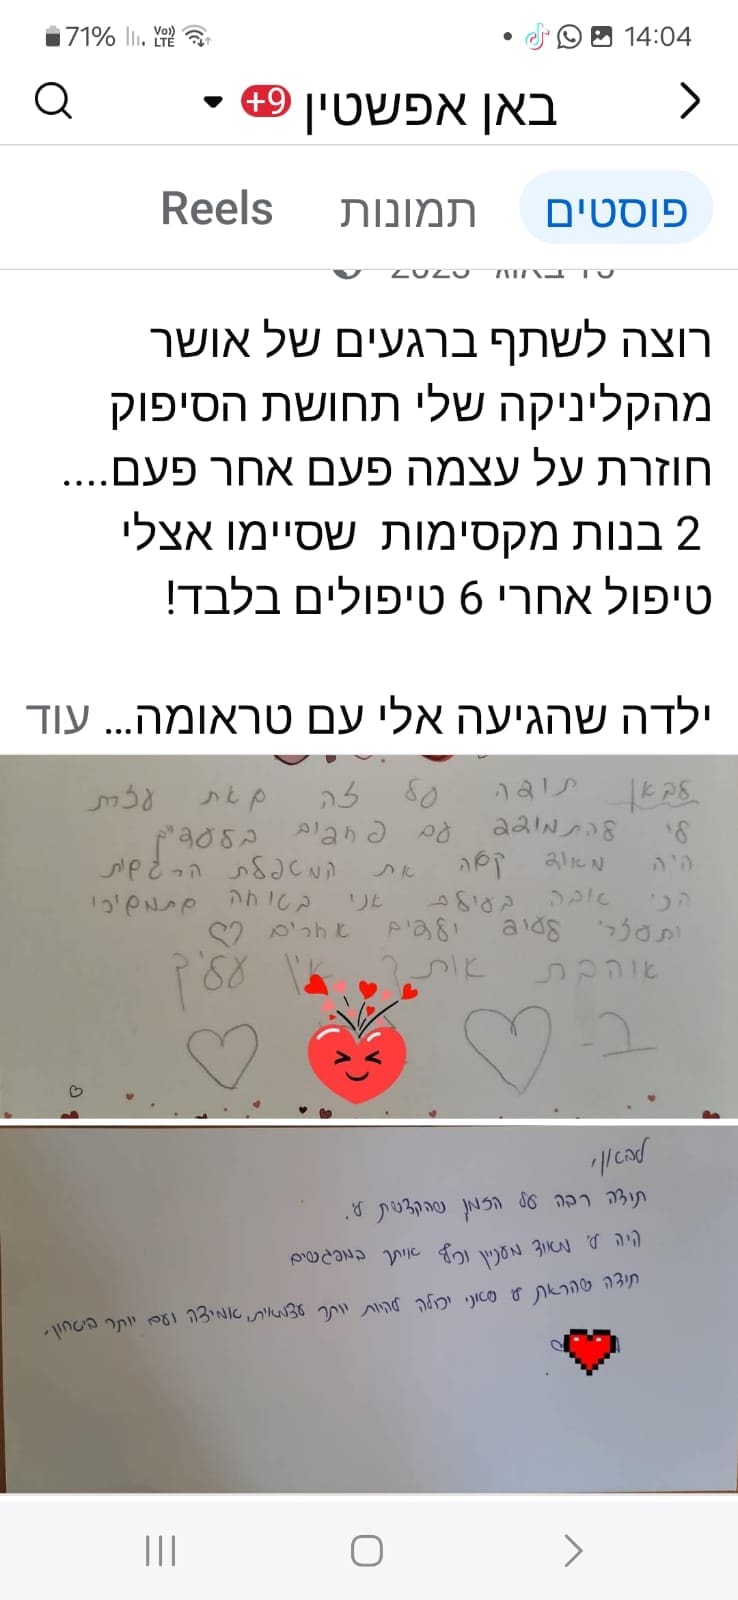 71% Vo)) LTE 14:04
באן אפשטין 9+
פוסטים תמונות Reels
רוצה לשתף ברגעים של אושר
מהקליניקה שלי תחושת הסיפוק
חוזרת על עצמה פעם אחר פעם....
2 בנות מקסימות שסיימו אצלי
טיפול אחרי 6 טיפולים בלבד!
ילדה שהגיעה אלי עם טראומה... עוד
לבאן תודה על זה שאת עזרת
לי להתמודד עם פחבים בעצם
היה מאוד קשה את המטפלת הרגשית
הכי אובה בעולם אני בטוחה שתמשיכי
ותעזרי לעוד ילדים אחרים
אוהבת אותך אין עליך
ב-
לבאן,
תודה רבה על הזמן שהקדשת לי.
היה לי מאוד מעניין וכיף איתך במפגשים
תודה שהראת לי שאני יכולה להיות יותר עצמאית, אמיצה ועם יותר ביטחון.